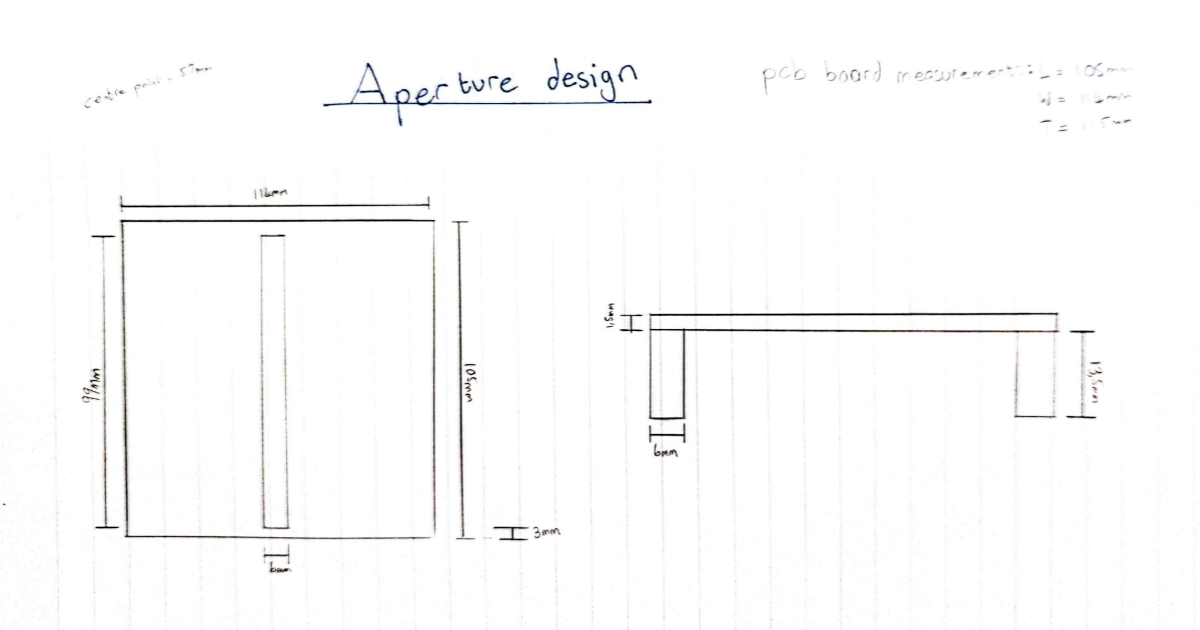 centre point = 57mm
Aperture design
pcb board measurements: L = 105mm
W =
T = 1.5mm
99mm
105mm
3mm
6mm
1.5mm
13.5mm
6mm